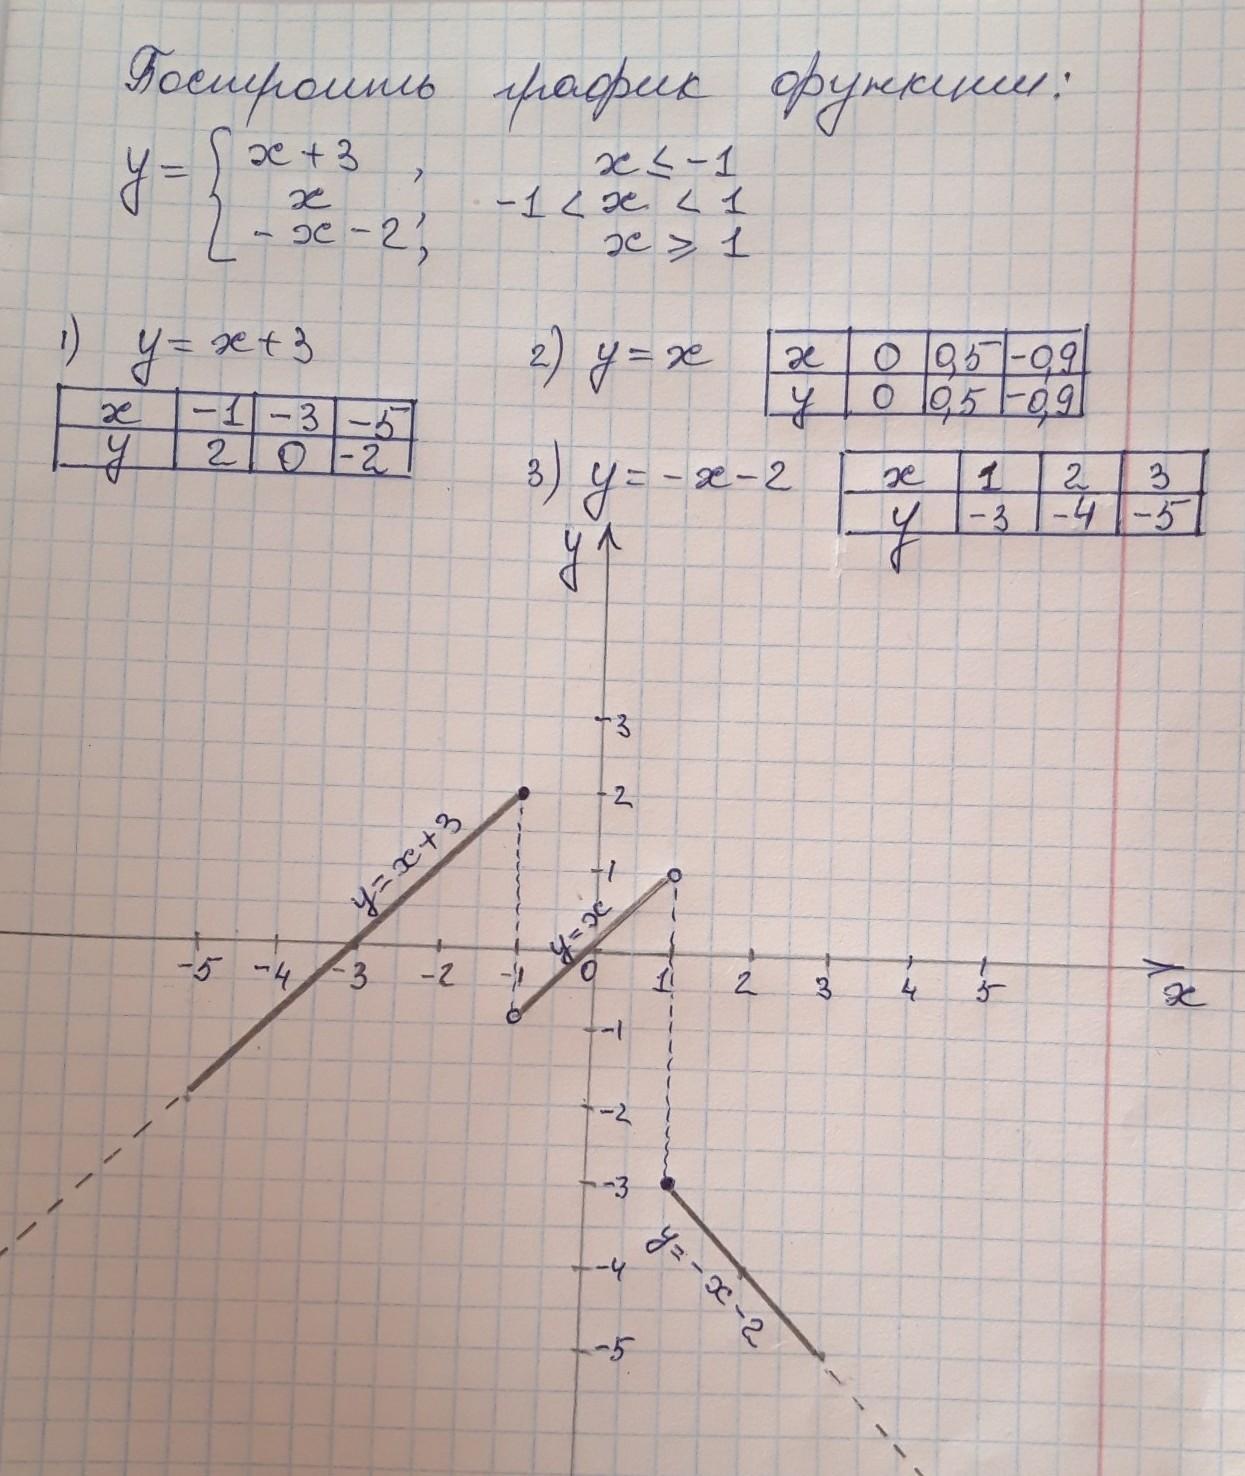 Построить график функции:
y = { x + 3 , x ≤ -1
x , -1 < x < 1
- x - 2 , x ⩾ 1
1) y = x + 3
x -1 -3 -5
y 2 0 -2
2) y = x
x 0 0,5 -0,9
y 0 0,5 -0,9
3) y = - x - 2
x 1 2 3
y -3 -4 -5
y
3
2
1
y = x + 3
y = x
-5 -4 -3 -2 -1 0 1 2 3 4 5
x
-1
-2
-3
y = - x - 2
-4
-5